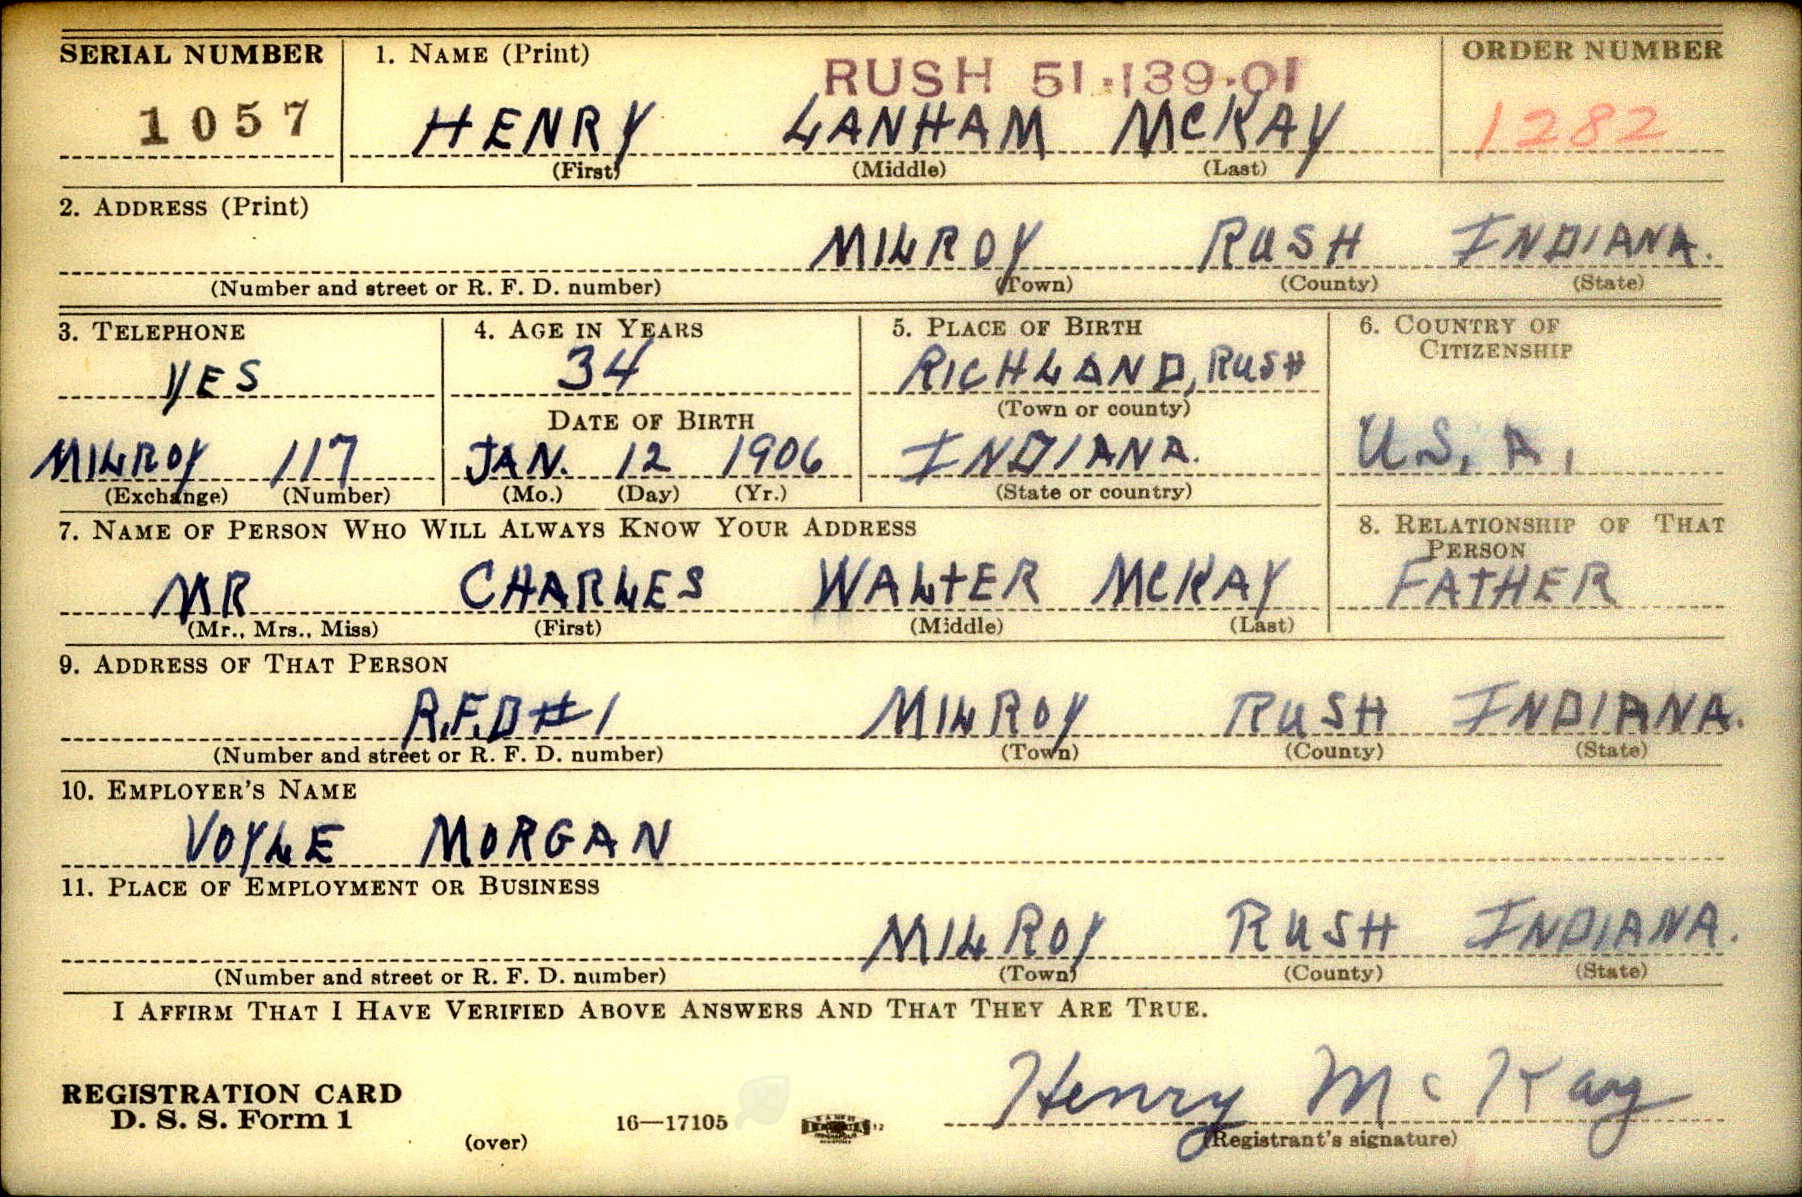 SERIAL NUMBER 1. NAME (Print) RUSH 51-139-01 ORDER NUMBER
1057 HENRY LANHAM MCKAY 1282
(First) (Middle) (Last)
2. ADDRESS (Print)
MILROY RUSH INDIANA.
(Number and street or R. F. D. number) (Town) (County) (State)
3. TELEPHONE 4. AGE IN YEARS 5. PLACE OF BIRTH 6. COUNTRY OF CITIZENSHIP
YES 34 RICHLAND, RUSH
DATE OF BIRTH (Town or county)
MILROY 117 JAN. 12 1906 INDIANA. U.S.A.
(Exchange) (Number) (Mo.) (Day) (Yr.) (State or country)
7. NAME OF PERSON WHO WILL ALWAYS KNOW YOUR ADDRESS 8. RELATIONSHIP OF THAT PERSON
MR CHARLES WALTER MCKAY FATHER
(Mr., Mrs., Miss) (First) (Middle) (Last)
9. ADDRESS OF THAT PERSON
R.F.D #1 MILROY RUSH INDIANA.
(Number and street or R. F. D. number) (Town) (County) (State)
10. EMPLOYER'S NAME
VOYLE MORGAN
11. PLACE OF EMPLOYMENT OR BUSINESS
MILROY RUSH INDIANA.
(Number and street or R. F. D. number) (Town) (County) (State)
I AFFIRM THAT I HAVE VERIFIED ABOVE ANSWERS AND THAT THEY ARE TRUE.
REGISTRATION CARD Henry McKay
D. S. S. Form 1 16—17105 12
(over) (Registrant's signature)